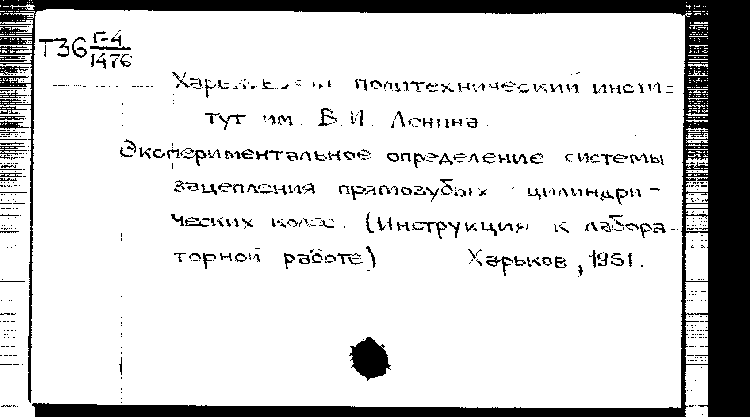 Т36 Г-4
1476
политехнический инсти-
тут им. В.И. Ленина.
Экспериментальное определение системы
зацепления прямозубых цилиндри-
ческих колес. (Инструкция к лабора-
торной работе) Харьков, 1951.